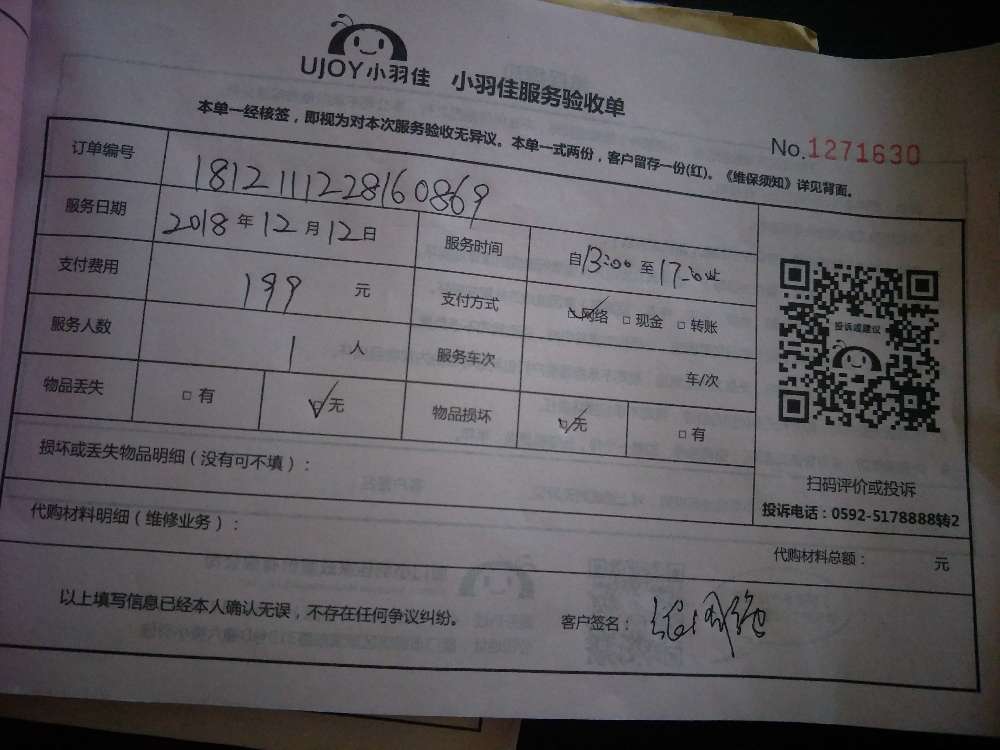 UJOY小羽佳 小羽佳服务验收单
No.1271630
本单一经核签，即视为对本次服务验收无异议。本单一式两份，客户留存一份(红)。《维保须知》详见背面。
订单编号 1812111228160869
服务日期 2018年12月12日 服务时间 自13:00至17:00止
支付费用 199元 支付方式 ☑网络 □现金 □转账
服务人数 1人 服务车次 车/次
物品丢失 □有 ☑无 物品损坏 ☑无 □有
投诉或建议
扫码评价或投诉
投诉电话：0592-5178888转2
损坏或丢失物品明细（没有可不填）：
代购材料明细（维修业务）：
代购材料总额： 元
以上填写信息已经本人确认无误，不存在任何争议纠纷。
客户签名：